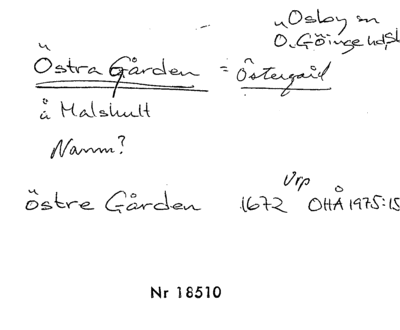 Osby sn
Ö. Göinge hd, sk
Östra Gården = Östergård
å Malshult
Namn?
Vrp
östre Gården 1672 OHÅ 1975:15
Nr 18510